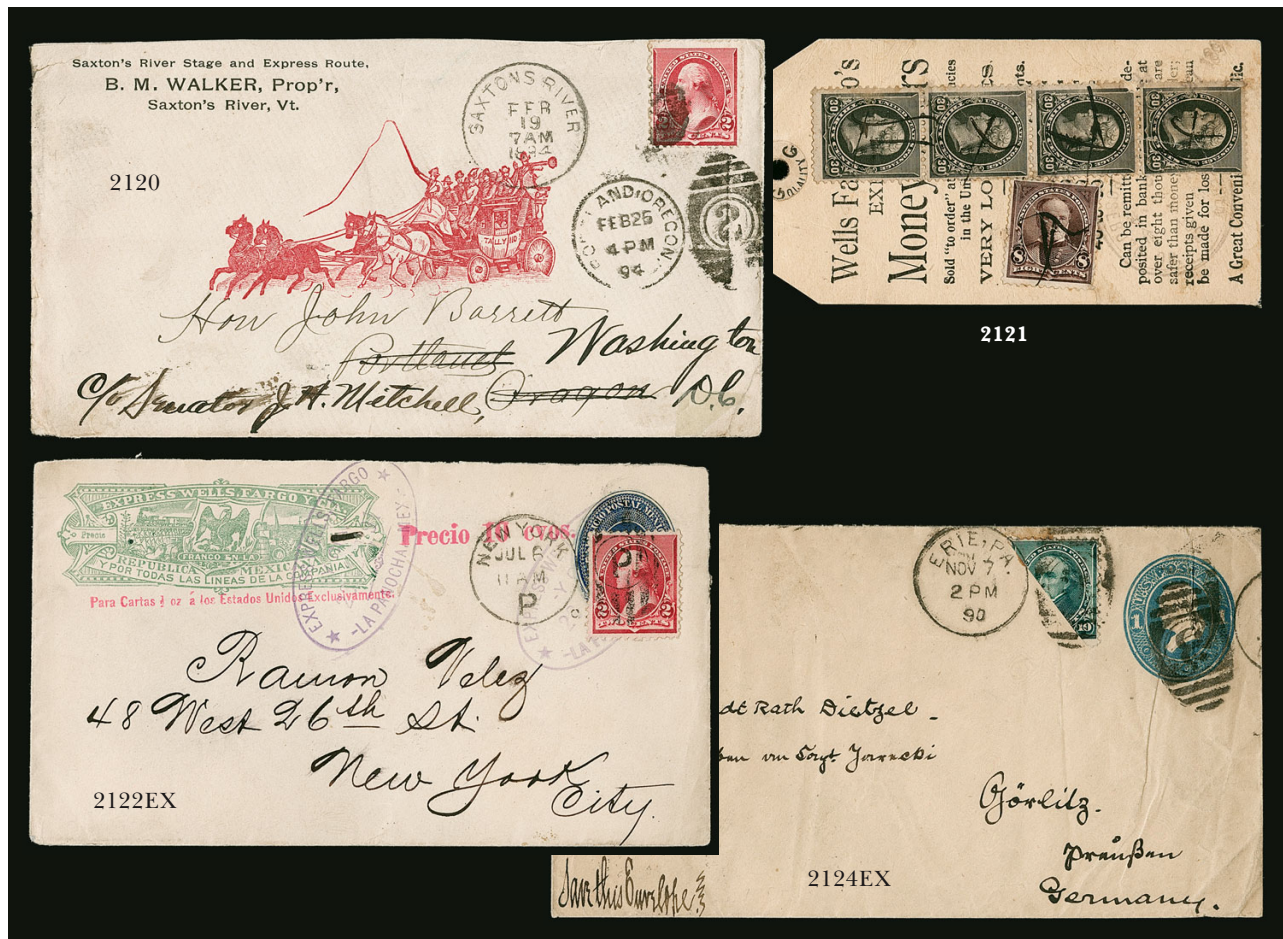 Saxton's River Stage and Express Route,
B. M. WALKER, Prop'r,
Saxton's River, Vt.
2120
SAXTONS RIVER
FEB
19
7AM
1894
UNITED STATES POSTAGE
2 CENTS 2
TALLY HO
AND, OREGON.
FEB 25
4 PM
94
2
Hon John Barrett
Portland
Washington
c/o Senator J. H. Mitchell,
Oragon
D.C.
Wells Fa o's
EX
Money rs
Sold "to order" a ncies
in the Un es.
VERY LO nts.
Can be remitt de-
posited in bank at
over eight thou are
safer than money ler;
receipts given an
be made for los
A Great Conveni lic.
30
30
30
30
8 EIGHT CENTS 8
2121
EXPRESS WELLS, FARGO Y CIA.
Precio
FRANCO EN LA
REPUBLICA MEXIC
Y POR TODAS LAS LINEAS DE LA COMPAÑIA.
Precio 10 cvos.
Para Cartas ½ oz á los Estados Unidos Exclusivamente.
EXPRESS WELLS FARGO
-LA PAROCHA MEX-
NEW YORK
JUL 6
11 AM
P
2 2
Ramon Velez
48 West 26th St.
New York
City.
2122EX
ERIE, PA.
NOV 7
2 PM
90
10
1
dt Rath Dietzel
Görlitz.
Preußen
Germany.
Save this Envelope
2124EX